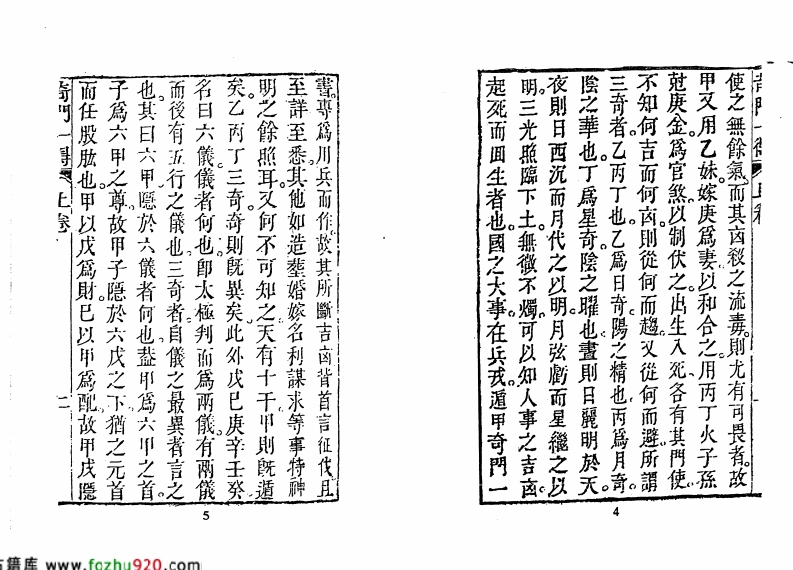 使之無餘氣。而其凶殺之流毒。則尤有可畏者。故
甲又用乙妹嫁庚爲妻以和合之。用丙丁火子孫
尅庚金爲官煞以制伏之。出生入死各有其門使
不知何吉而何凶則從何而趨又從何而避所謂
三奇者乙丙丁也。乙爲日奇陽之精也丙爲月奇。
陰之華也丁爲星奇陰之曜也晝則日麗明於天
夜則日西沉而月代之以明。月弦虧而星繼之以
明三光照臨下土。無微不燭。可以知人事之吉凶。
起死而回生者也國之大事。在兵戎。遁甲奇門一
4
書專爲用兵而作。故其所斷吉凶背首言征伐且
至詳至悉其他如造塟婚嫁名利謀求等事特神
明之餘照耳又何不可知之天有十干甲則旣遁
矣。乙丙丁三奇奇則旣異矣此外戊巳庚辛壬癸
名曰六儀儀者何也。卽太極判而爲兩儀。有兩儀
而後有五行之儀也三奇者。自儀之最異者言之
也。其曰六甲隱於六儀者何也葢甲爲六甲之首。
子爲六甲之尊故甲子隱於六戊之下猶之元首
而任股肱也。甲以戊爲財巳以甲爲配。故甲戌隱
奇門一得 上卷 二
5
古籍库 www.fozhu920.com